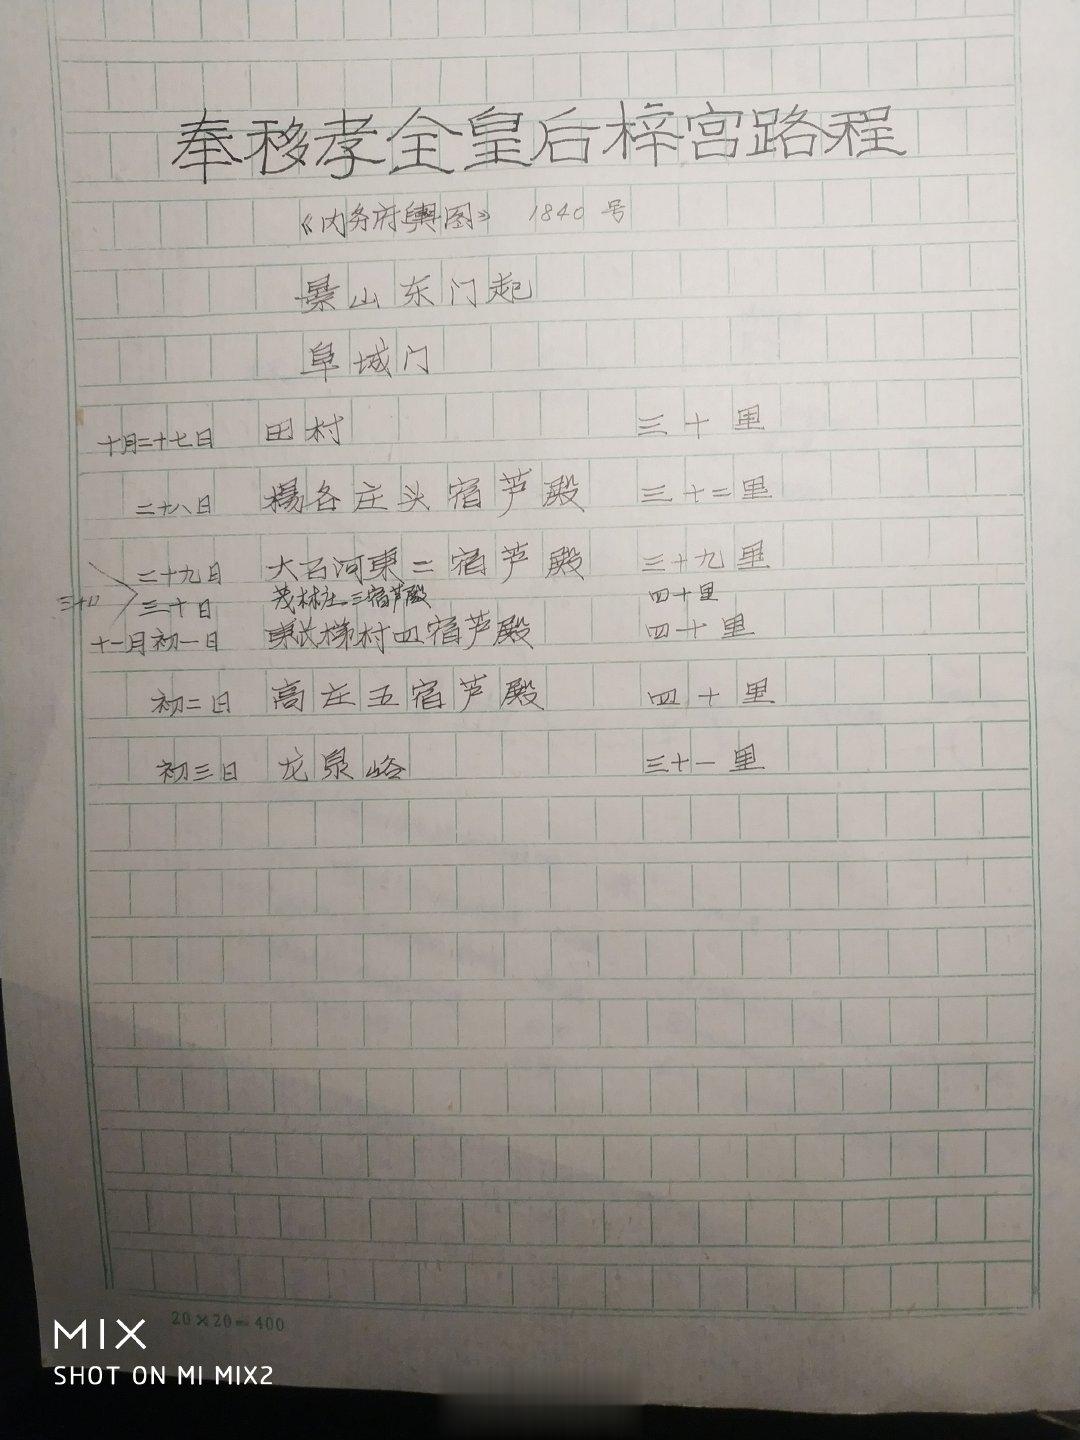 奉移孝全皇后梓宫路程
《内务府舆图》 1840 号
景山东门起
阜城门
十月二十七日 田村 三十里
二十八日 楊各庄头宿芦殿 三十二里
二十九日 大石河東二宿芦殿 三十九里
三十日 三十日 茂林庄三宿芦殿 四十里
十一月初一日 東 梯村四宿芦殿 四十里
初二日 高庄五宿芦殿 四十里
初三日 龙泉峪 三十一里
20×20=400
MIX
SHOT ON MI MIX2